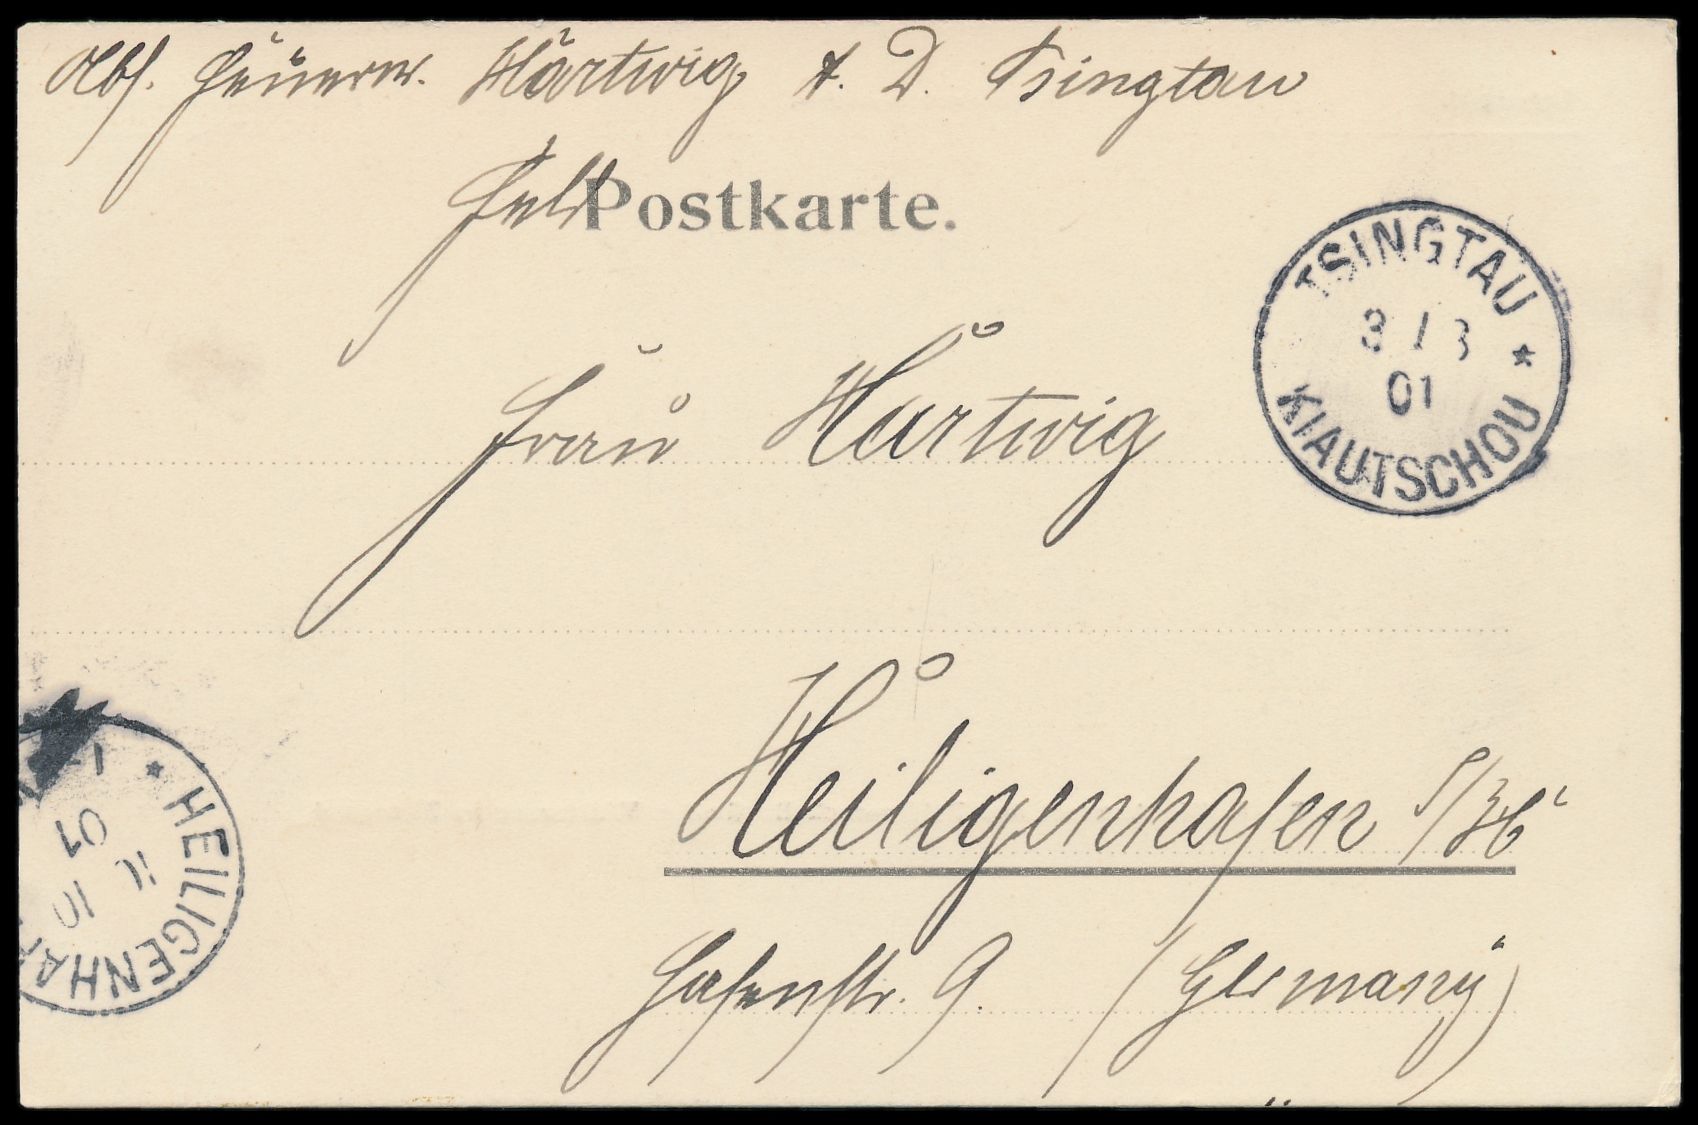 Abs. Feuerw. Hartwig z. D. Tsingtau
Feld
Postkarte.
TSINGTAU
3 / 3
01
* KIAUTSCHOU
Frau Hartwig
Heiligenhafen
Hafenstr. 9. (Germany)
* HEILIGENHAF
01
10